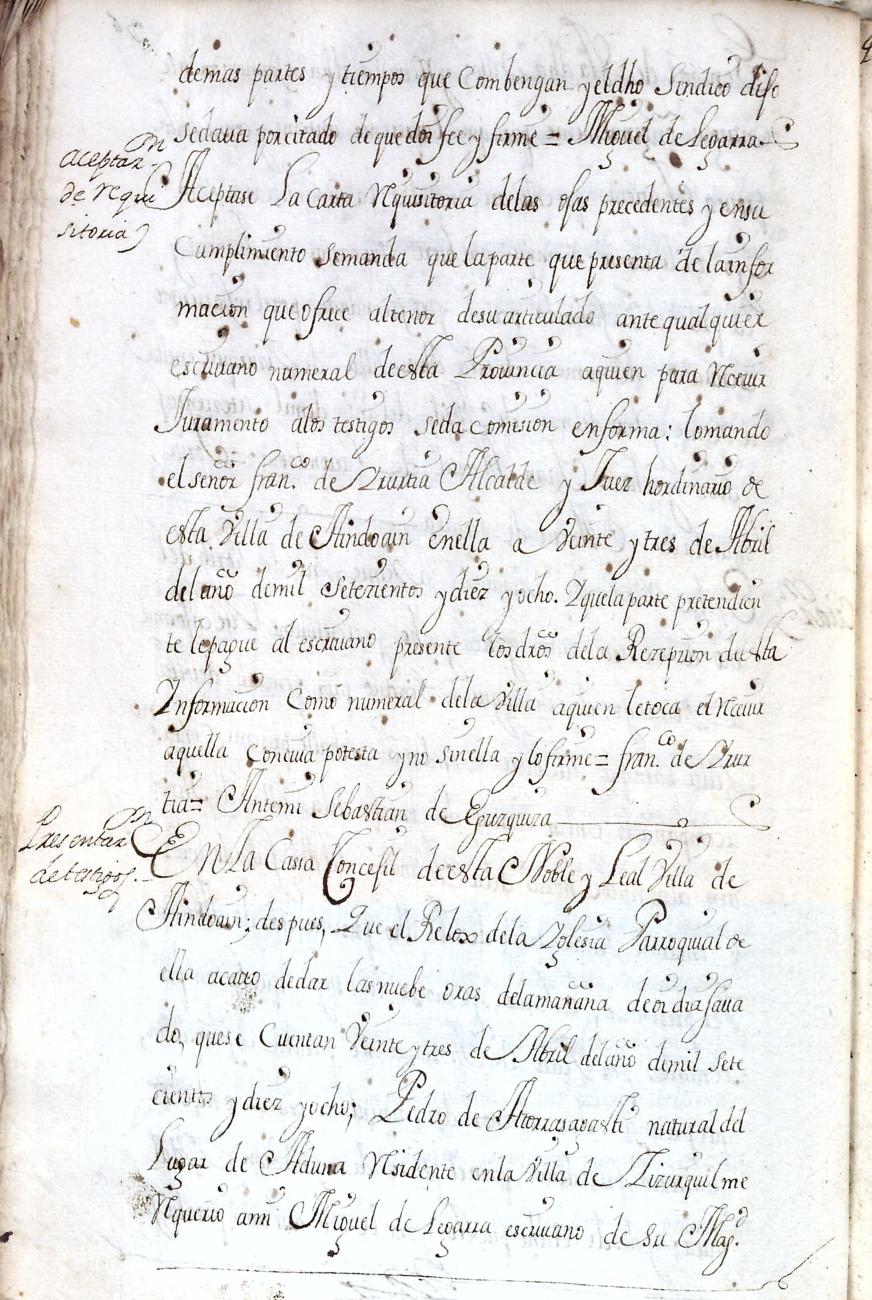 demas partes y tiempos que Combengan y el dho Sindico dijo
se daua por citado de que doi fee y firme = Miguel de Legarra
Aceptaon
de requi
sitoria
Aceptase La Carta Requisitoria de las ojas precedentes y en su
Cumplimiento Se manda que la parte que presenta de la infor
macion que ofrece al tenor de su articulado ante qual quier
escriuano numeral de esta Prouincia a quien para Receuir
Juramento a los testigos se da comision en forma: lo mando
el señor franco. de Yrurtia Alcalde y Juez hordinario de
esta Villa de Aindoain en ella a Veinte y tres de Abril
del año de mil Setezientos y diez y ocho. Y que la parte pretendien
te le pague al escriuano presente los dros de la Rezepzion de esta
Ynformacion Como numeral de la Villa a quien le toca el Receuir
aquella Con cuia potesta y no sin ella y lo firme = franco. de Yrur
tia = Antemi Sebastian de Eguzquiza
Presentaon
de testigos
En La Cassa Concejil de esta Noble y Leal Villa de
Aindoain; despues, Que el Relox de la Yglesia Parroquial de
ella acauo de dar las nuebe oras de la mañana de oi dia saua
do, que se Cuentan Veinte y tres de Abril del año de mil Sete
cientos y diez y ocho; Pedro de Atorrasagasti natural del
Lugar de Aduna Residente en la Villa de Zizurquil me
Requerio a mi Miguel de Legarra escriuano de Su Magd.